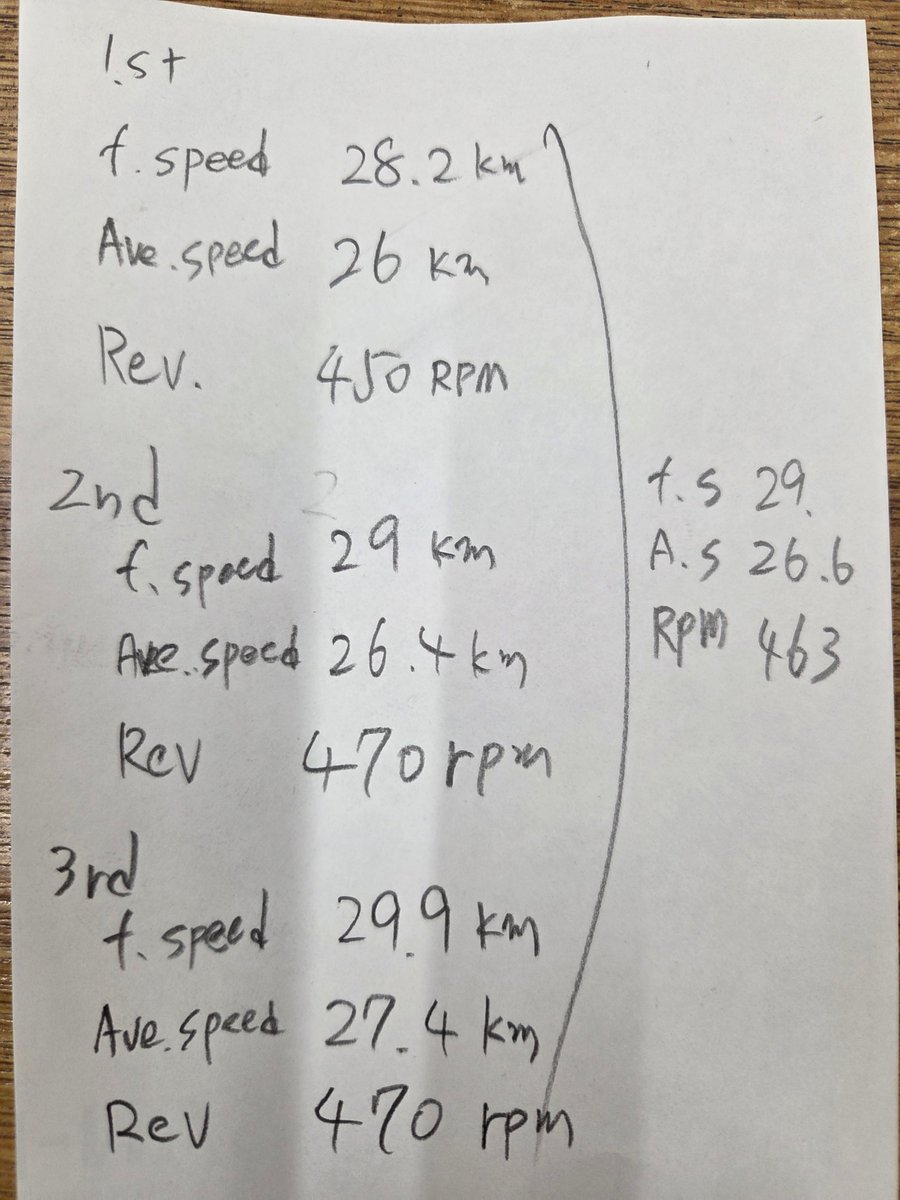 1.st
f.speed 28.2 km
Ave.speed 26 km
Rev. 450 RPM
2nd
f.speed 29 km
Ave.speed 26.4 km
Rev 470 rpm
3rd
f.speed 29.9 km
Ave.speed 27.4 km
Rev 470 rpm
f.s 29.
A.s 26.6
Rpm 463